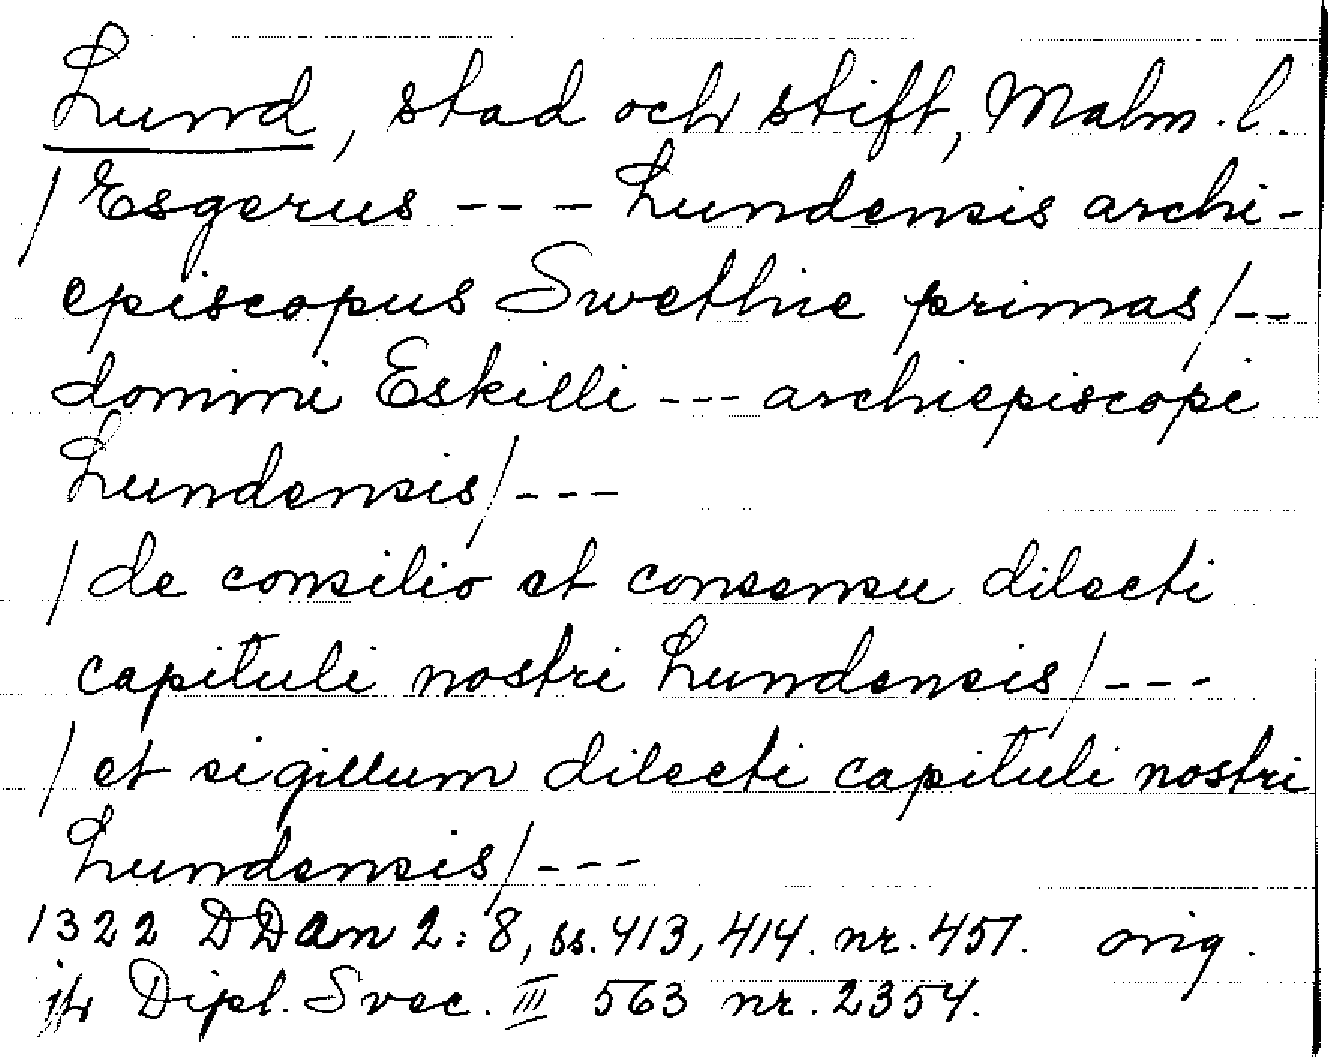 Lund, stad och stift, Malm. l.
/Esgerus --- Lundensis archi-
episcopus Swethie primas/--
domini Eskilli --- archiepiscopi
Lundensis/---
/de consilio et consensu dilecti
capituli nostri Lundensis/---
/et sigillum dilecti capituli nostri
Lundensis/---
1322 DDan 2:8, ss. 413, 414. nr. 457. orig.
jfr Dipl. Svec. III 563 nr. 2354.